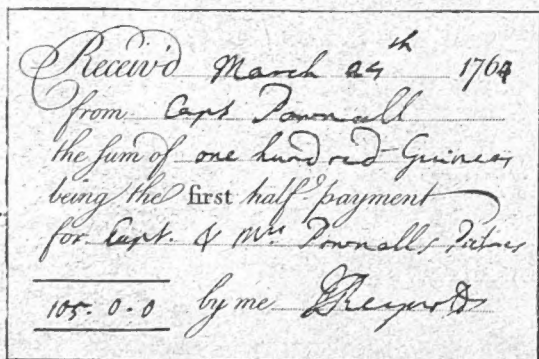 Receiv'd March 24th 1764
from Capt Pownall
the sum of one hundred Guineas
being the first half payment
for Capt. & Mrs Pownalls Pictures
105.0.0 by me JReynolds